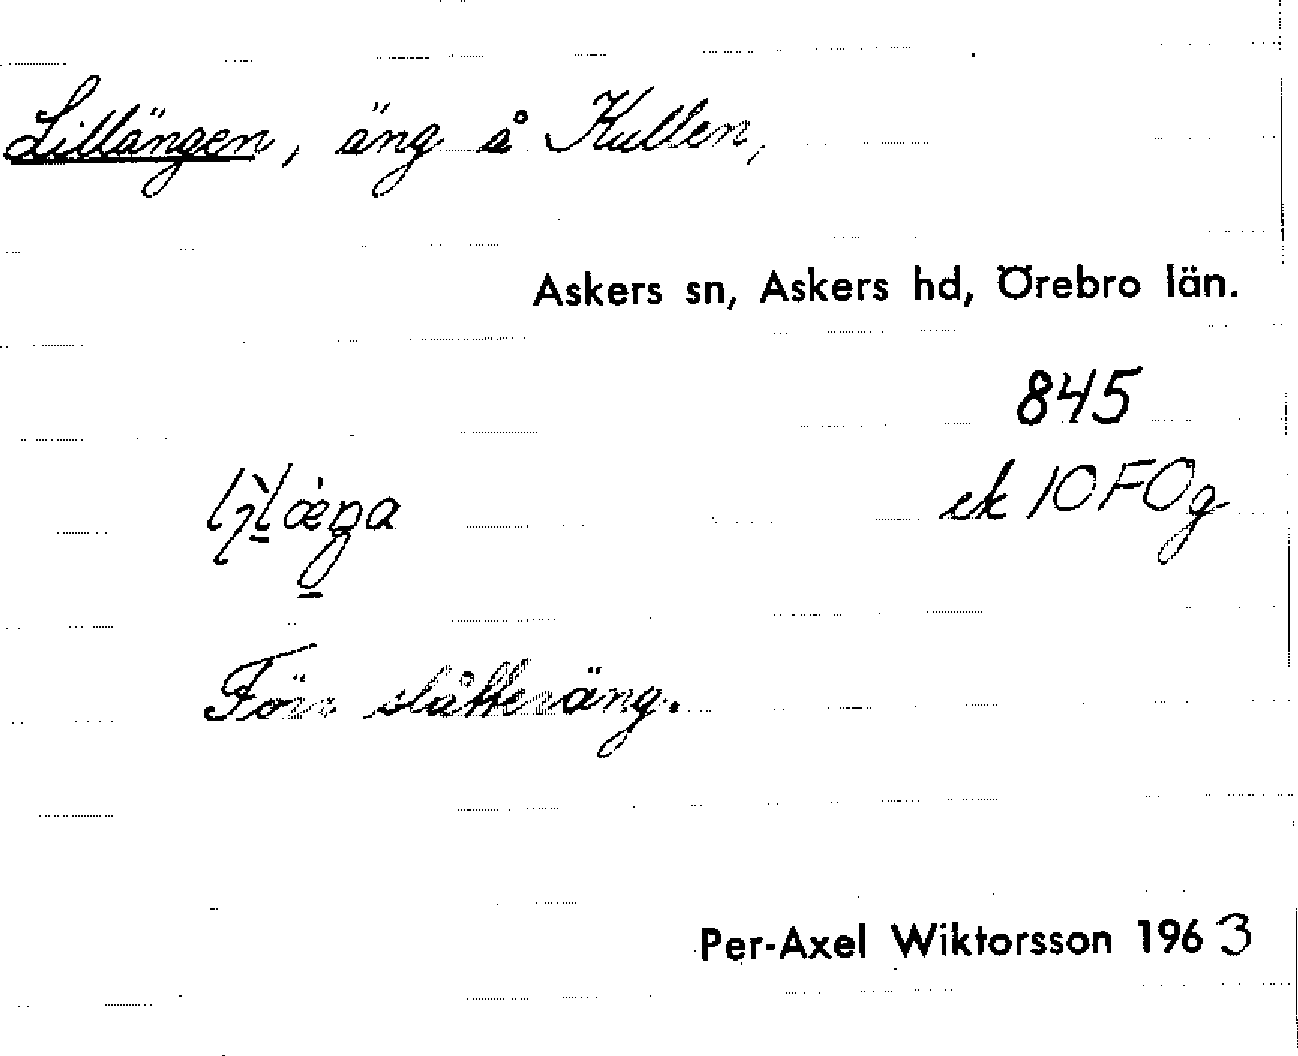 Lillängen, äng å Kullen,
Askers sn, Askers hd, Örebro län.
845
ek 10 F O g
Förr slåtteräng.
Per-Axel Wiktorsson 1963